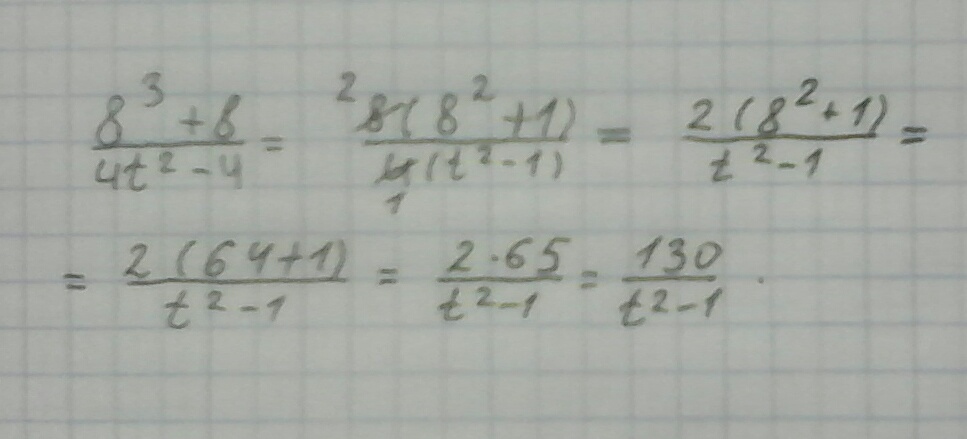 8³+8/4t²-4 = ²8(8²+1)/4₁(t²-1) = 2(8²+1)/t²-1 =
= 2(64+1)/t²-1 = 2·65/t²-1 = 130/t²-1 .